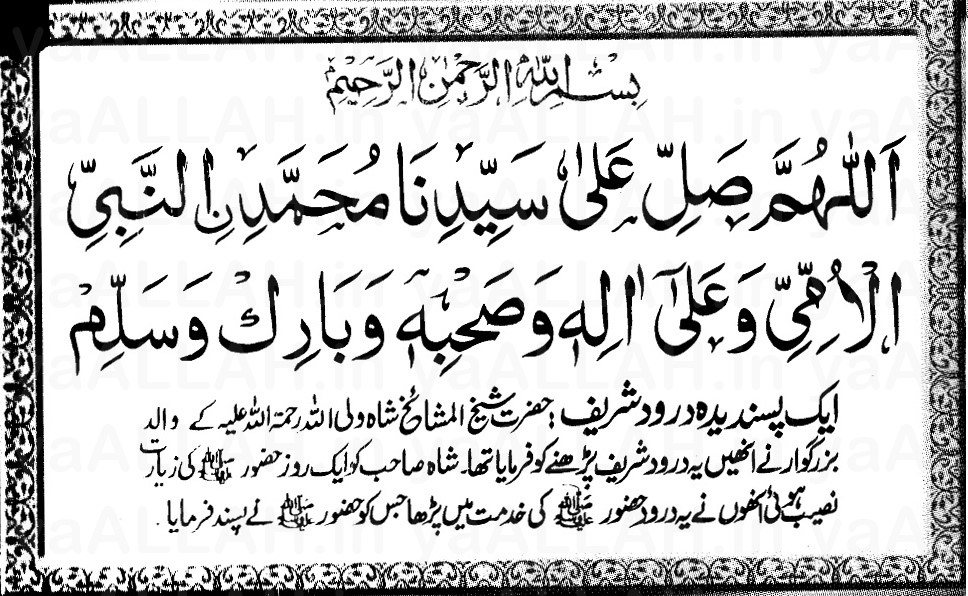 بِسْمِ اللهِ الرَّحْمٰنِ الرَّحِيْمِ
اَللّٰهُمَّ صَلِّ عَلٰى سَيِّدِنَا مُحَمَّدِنِ النَّبِيِّ
الْاُمِّيِّ وَعَلٰٓى اٰلِهٖ وَصَحْبِهٖ وَبَارِكْ وَسَلِّمْ
ایک پسندیدہ درود شریف : حضرت شیخ المشائخ شاہ ولی اللہ رحمۃ اللہ علیہ کے والد
بزرگوار نے انھیں یہ درود شریف پڑھنے کو فرمایا تھا۔ شاہ صاحب کو ایک روز حضور ﷺ کی زیارت
نصیب ہوئی انھوں نے یہ درود حضور ﷺ کی خدمت میں پڑھا جس کو حضور ﷺ نے پسند فرمایا۔
yaALLAH.in yaALLAH.in yaALLAH.in